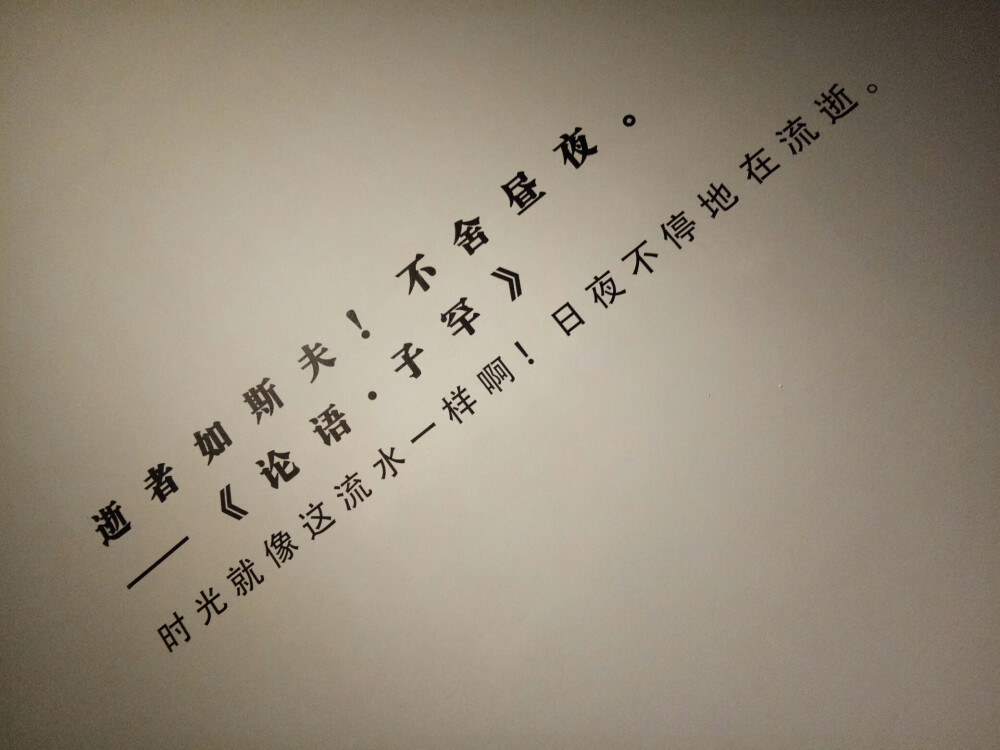 逝者如斯夫！不舍昼夜。
——《论语·子罕》
时光就像这流水一样啊！日夜不停地在流逝。